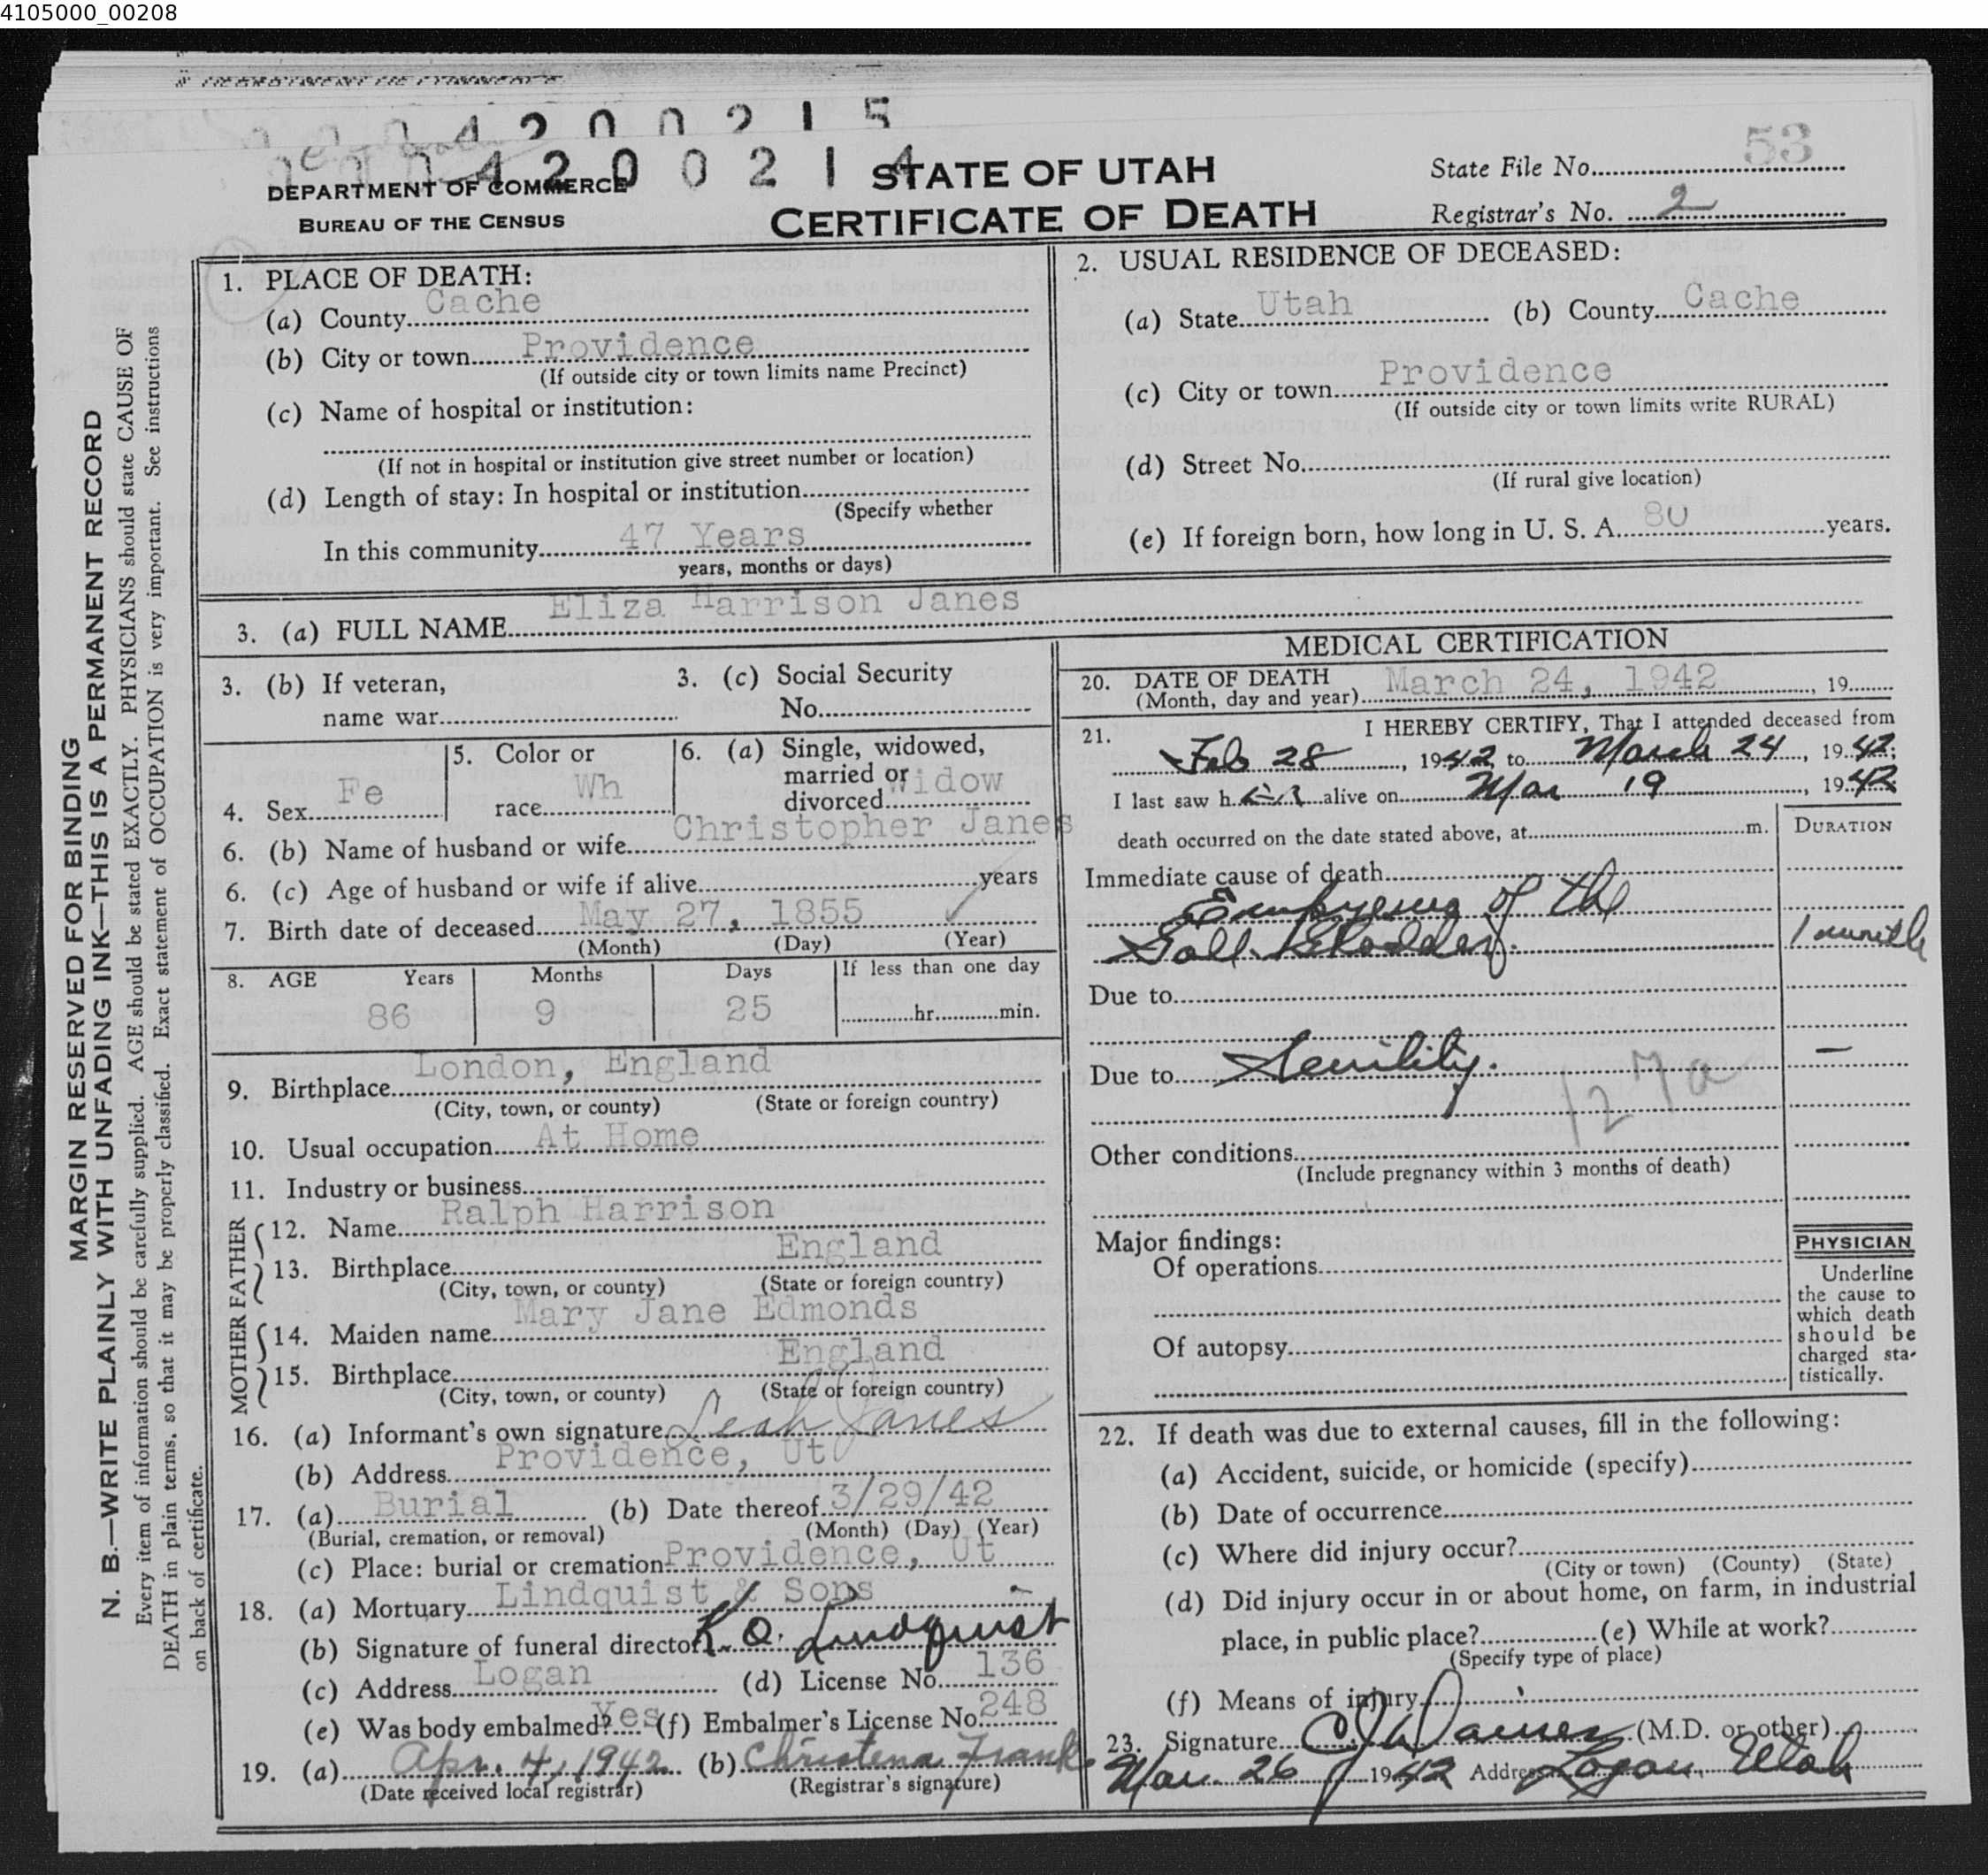 4105000_00208
DEPARTMENT OF COMMERCE
0 0 4 2 0 0 2 1 5
4 2 0 0 2 1 4
STATE OF UTAH
DEPARTMENT OF COMMERCE
BUREAU OF THE CENSUS
CERTIFICATE OF DEATH
State File No. 53
Registrar's No. 2
MARGIN RESERVED FOR BINDING
N. B.—WRITE PLAINLY WITH UNFADING INK—THIS IS A PERMANENT RECORD
Every item of information should be carefully supplied. AGE should be stated EXACTLY. PHYSICIANS should state CAUSE OF
DEATH in plain terms, so that it may be properly classified. Exact statement of OCCUPATION is very important. See instructions
on back of certificate.
1. PLACE OF DEATH:
(a) County Cache
(b) City or town Providence
(If outside city or town limits name Precinct)
(c) Name of hospital or institution:
(If not in hospital or institution give street number or location)
(d) Length of stay: In hospital or institution
(Specify whether
In this community 47 Years
years, months or days)
2. USUAL RESIDENCE OF DECEASED:
(a) State Utah (b) County Cache
(c) City or town Providence
(If outside city or town limits write RURAL)
(d) Street No.
(If rural give location)
(e) If foreign born, how long in U. S. A. 80 years.
3. (a) FULL NAME Eliza Harrison Janes
3. (b) If veteran,
name war
3. (c) Social Security
No.
4. Sex Fe
5. Color or
race Wh
6. (a) Single, widowed,
married or
divorced Widow
6. (b) Name of husband or wife Christopher Janes
6. (c) Age of husband or wife if alive years
7. Birth date of deceased May 27, 1855
(Month) (Day) (Year)
8. AGE Years Months Days If less than one day
86 9 25 hr. min.
9. Birthplace London, England
(City, town, or county) (State or foreign country)
10. Usual occupation At Home
11. Industry or business
FATHER
12. Name Ralph Harrison
13. Birthplace England
(City, town, or county) (State or foreign country)
MOTHER
14. Maiden name Mary Jane Edmonds
15. Birthplace England
(City, town, or county) (State or foreign country)
16. (a) Informant's own signature Leah Janes
(b) Address Providence, Ut
17. (a) Burial (b) Date thereof 3/29/42
(Burial, cremation, or removal) (Month) (Day) (Year)
(c) Place: burial or cremation Providence, Ut
18. (a) Mortuary Lindquist & Sons
(b) Signature of funeral director K. O. Lindquist
(c) Address Logan (d) License No. 136
(e) Was body embalmed? Yes (f) Embalmer's License No. 248
19. (a) Apr. 4, 1942 (b) Christena Frank
(Date received local registrar) (Registrar's signature)
MEDICAL CERTIFICATION
20. DATE OF DEATH
(Month, day and year) March 24, 1942, 19
21. I HEREBY CERTIFY, That I attended deceased from
Feb 28, 1942 to March 24, 1942;
I last saw her alive on Mar 19, 1942
death occurred on the date stated above, at m.
DURATION
Immediate cause of death
Empyema of the
Gall Bladder. 1 month
Due to
Due to Senility. —
127a
Other conditions
(Include pregnancy within 3 months of death)
Major findings:
Of operations
Of autopsy
PHYSICIAN
Underline
the cause to
which death
should be
charged sta-
tistically.
22. If death was due to external causes, fill in the following:
(a) Accident, suicide, or homicide (specify)
(b) Date of occurrence
(c) Where did injury occur?
(City or town) (County) (State)
(d) Did injury occur in or about home, on farm, in industrial
place, in public place? (e) While at work?
(Specify type of place)
(f) Means of injury
23. Signature (M.D. or other)
Mar. 26 1942 Address Logan, Utah